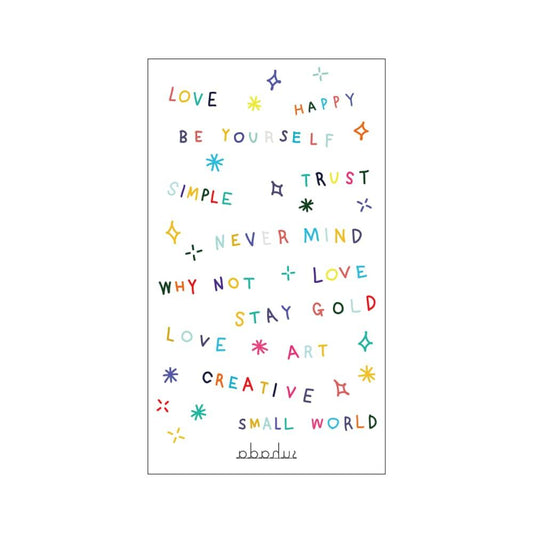 LOVE
HAPPY
BE YOURSELF
TRUST
SIMPLE
NEVER MIND
WHY NOT
LOVE
STAY GOLD
LOVE
ART
CREATIVE
SMALL WORLD